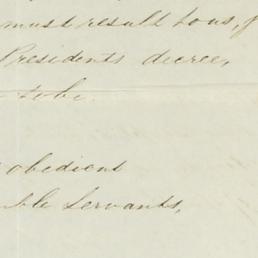 must result to us, f
Presidents decree,
to be.
obedient
ble Servants,